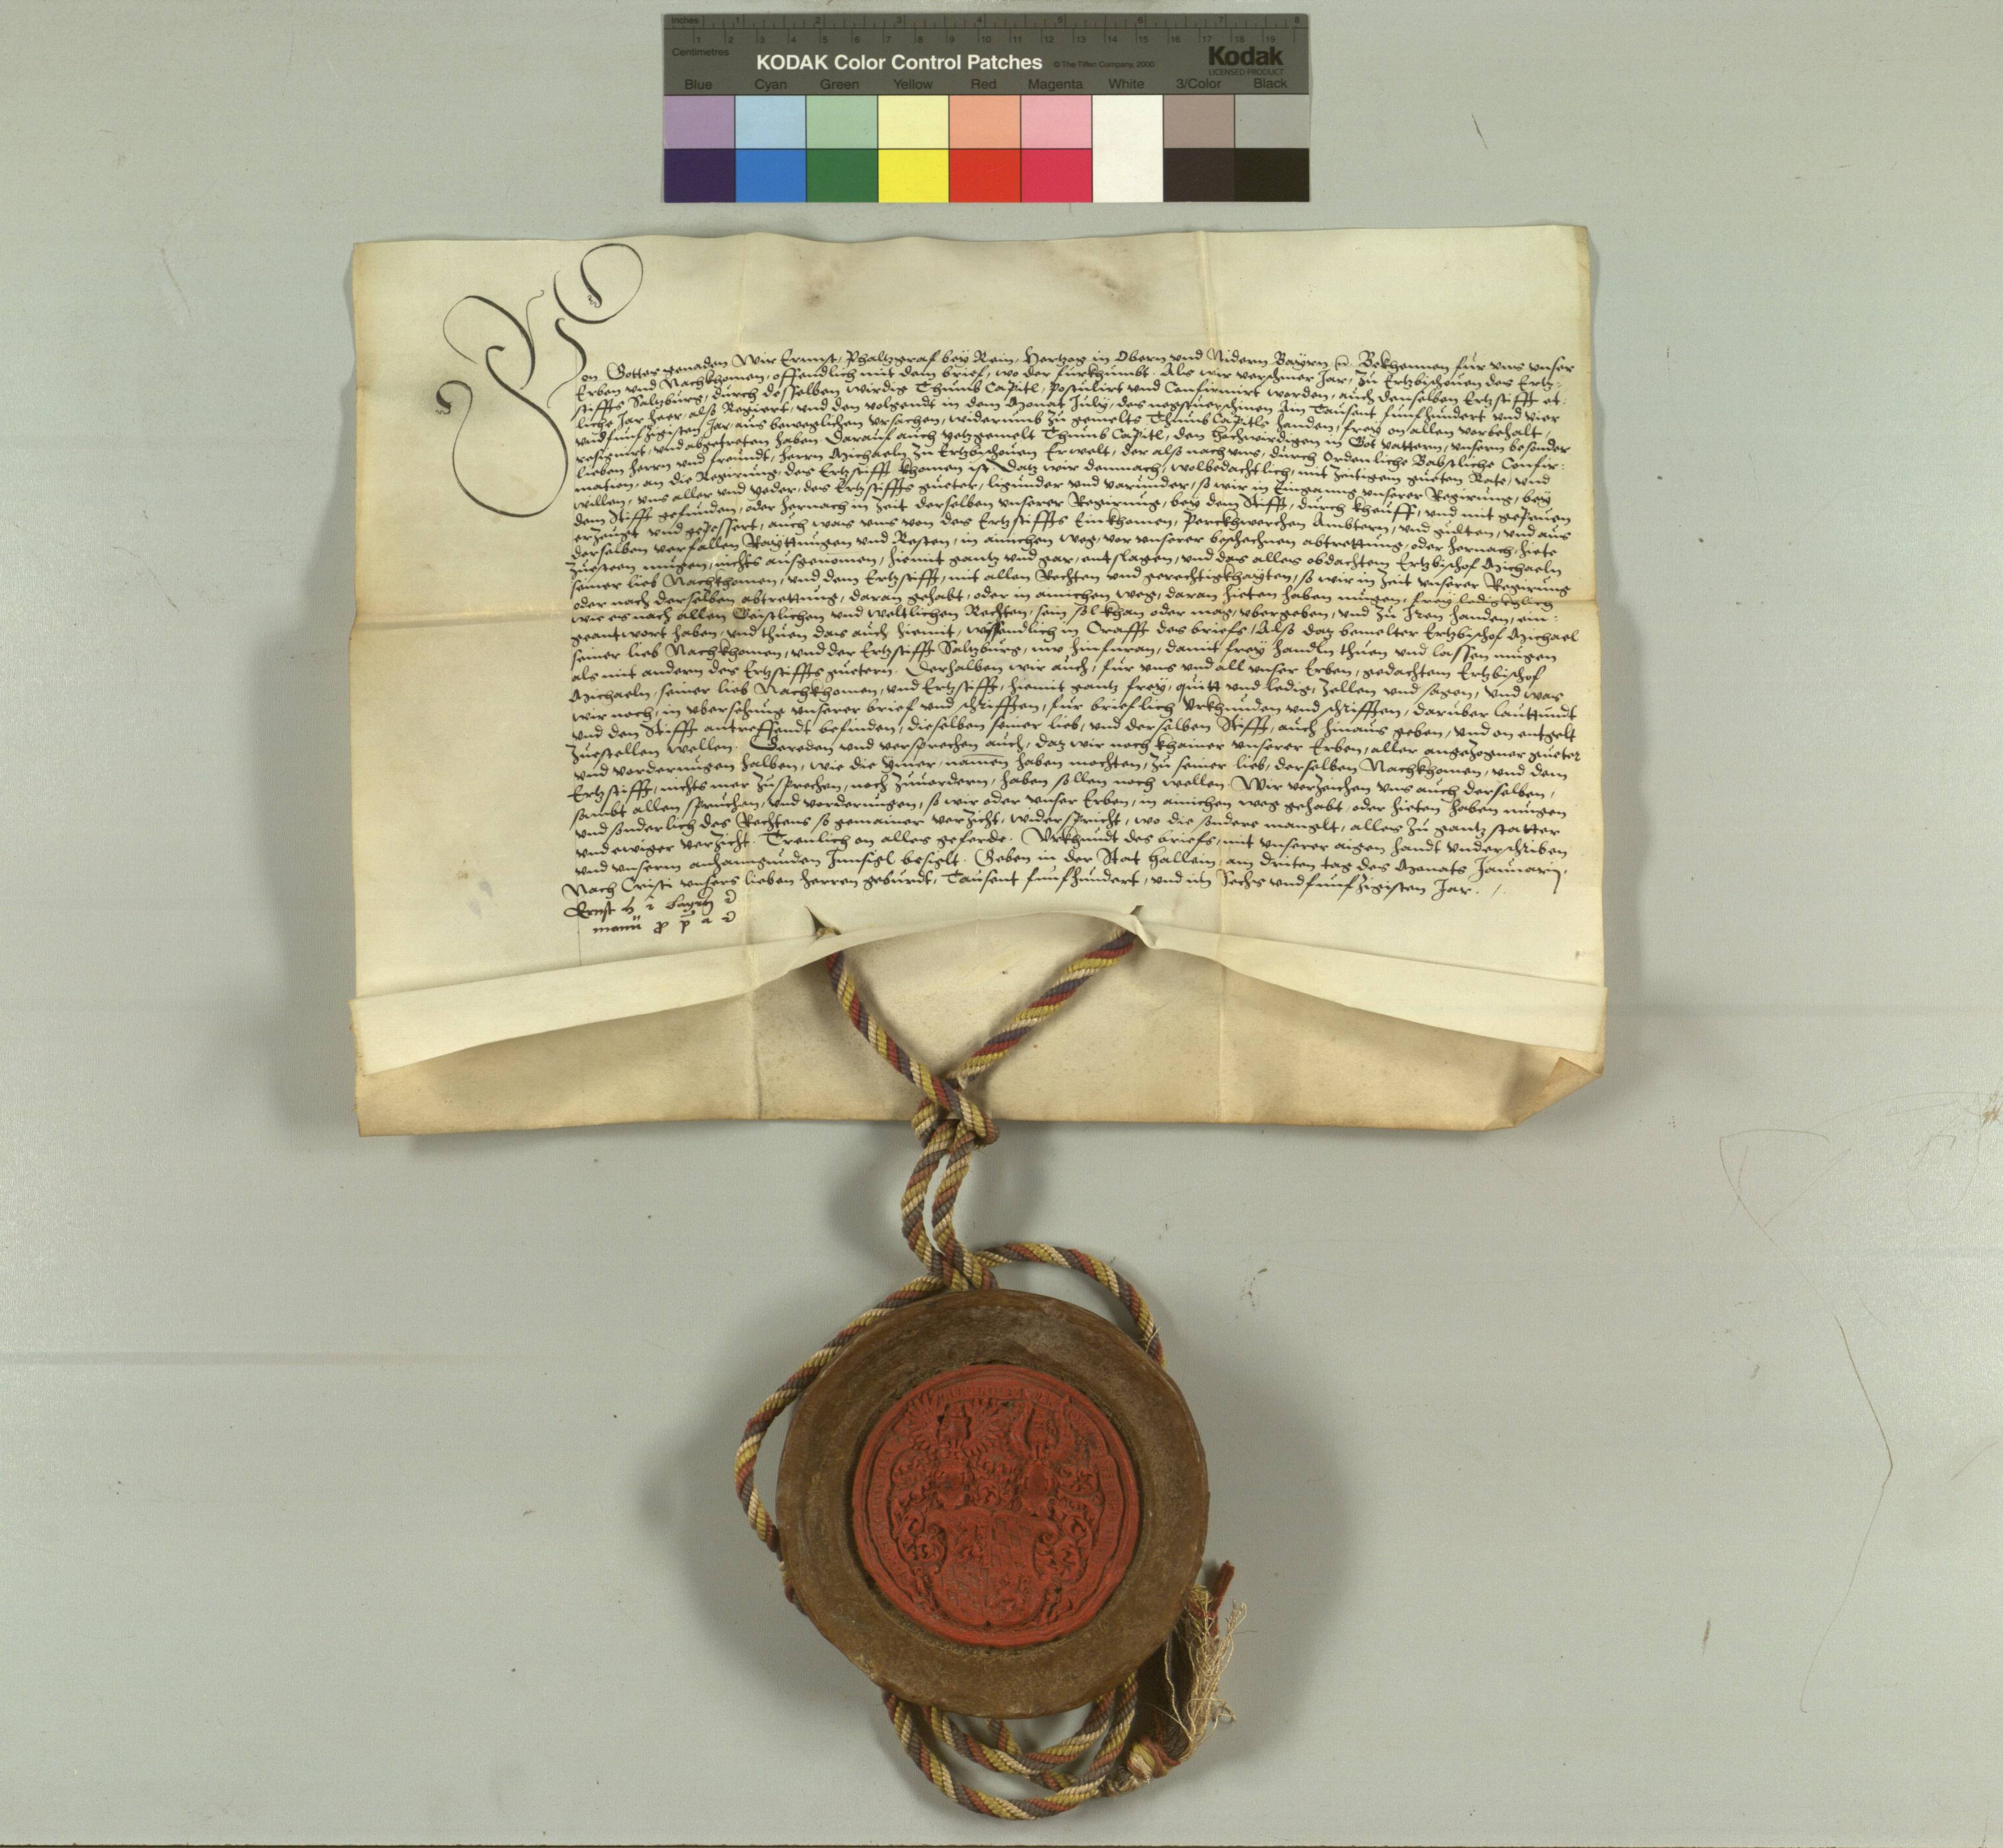 Inches 1 2 3 4 5 6 7 8
Centimetres 1 2 3 4 5 6 7 8 9 10 11 12 13 14 15 16 17 18 19
KODAK Color Control Patches © The Tiffen Company, 2000 Kodak
LICENSED PRODUCT
Blue Cyan Green Yellow Red Magenta White 3/Color Black
Von Gottes genaden Wir Ernnst, Phaltzgraf bey Rein, Hertzog in Obern vnd Nidern Bayrn Bekhennen für vns vnser
Erben vnd Nachkhomen, offendlich mit dem brief, wo der fürkhumbt. Als wir verschiner Jar, Zu Ertzbischouen des Ertz-
stiffts Saltzburg, durch desselben wirdig Thumb Capitl, postulirt vnd Confirmirt worden, auch denselben Ertzstifft et-
liche Jar heer, also Regiert, vnd den volgendt in dem Monat July, des negstuerschinen Im Tausent funfhundert vnd vier
vndfunfzigisten Jar, aus beweglichen vrsachen, widerumb zu gemelts Thumb Capitls handen, frey on allen vorbehalt,
resignirt, vnd abgetreten haben. Darauf auch yetzgemelt Thumb Capitl, den Hochwirdigen in Got vattern, vnsern besonder
lieben herrn vnd freundt, herrn Michaeln zu Ertzbischouen Erwelt, der also nach vns, durch Ordenliche Babstliche Confir-
mation, an die Regirung, des Ertzstifft khomen ist. Datz wir demnach, wolbedachtlich, mit zeitigem gueten Rate, vnd
willen, vns aller vnd yeder, des Ertzstiffts gueter, ligunder vnd varunder, so wir in Einganng vnserer Regirung, bey
dem Stifft gefunden, oder hernach in zeit derselben vnserer Regirung, bey dem Stifft, durch khauff, vnd mit gepeuen
erzeugt vnd gepessert, auch was vns von des Ertzstiffts Einkhomen, Perckhwerchen Ambtern, vnd gulten, vnd aus
derselben verfallen Rayttungen vnd Resten, in ainichen weg, vor vnserer beschechnen abtrettung, oder hernach, hiete
zuesteen mugen, nichts ausgenomen, hiemit gantz vnd gar, entslagen, vnd das alles obdachtem Ertzbischof Michaeln
seiner lieb Nachkhomen, vnd dem Ertzstifft, mit allen Rechten vnd gerechtigkhayten, so wir in zeit vnserer Regirung
oder nach derselben abtrettung, daran gehabt, oder in ainichen weg, daran hieten haben mugen, frey ledigkhlich
wie es nach allen Geistlichen vnd weltlichen Rechten, sein sol khan oder mag, vbergeben, vnd zu Iren handen, ein-
geantwort haben, vnd thuen das auch hiemit, wissendlich in Crafft des briefs, Also daz bemelter Ertzbischof Michael
seiner lieb Nachkhomen, vnd der Ertzstifft Saltzburg, nu hinfuran, damit frey handln thuen vnd lassen mugen
als mit andern des Ertzstiffts guetern. Derhalben wir auch, für vns vnd all vnser Erben, gedachtem Ertzbischof
Michaeln, seiner lieb Nachkhomen, vnd Ertzstifft, hiemit gantz frey, quitt vnd ledig, zellen vnd sagen, vnd was
wir noch, in vbersehung vnserer brief vnd schrifften, für brieflich Vrkhunden vnd schrifften, darüber lauttundt
vnd den Stifft antreffendt befinden, dieselben seiner lieb, vnd derselben Stifft, auch hinaus geben, vnd on entgelt
zuestellen wellen. Gereden vnd versprechen auch, daz wir noch khainer vnserer Erben, aller angezogner gueter
vnd vorderungen halben, wie die ymer namen haben mochten, zu seiner lieb, derselben Nachkhomen, vnd dem
Ertzstifft, nichts mer zusprechen, noch zuuordern, haben sollen noch wellen. Wir verzeichen vns auch derselben,
sambt allen spruchen, vnd vorderungen, so wir oder vnser Erben, in ainichen weg gehabt, oder hieten haben mugen
vnd sonderlich des Rechtens so gemainer verzicht, widerspricht, wo die sondere manglt, alles zu gantz statter
vnd ewiger verzicht. Treulich on alles geferde. Vrkhundt des briefs, mit vnserer aigen handt vnderschriben
vnd vnserm anhanngunden Innsigl besiglt. Geben in der Stat Hallein, am driten tag des Monats Januarij,
Nach Cristi vnsers lieben herren geburdt, Tausent funfhundert, vnd im Sechs vndfunfzigisten Jar.
Ernst h i bayrn
manu p p